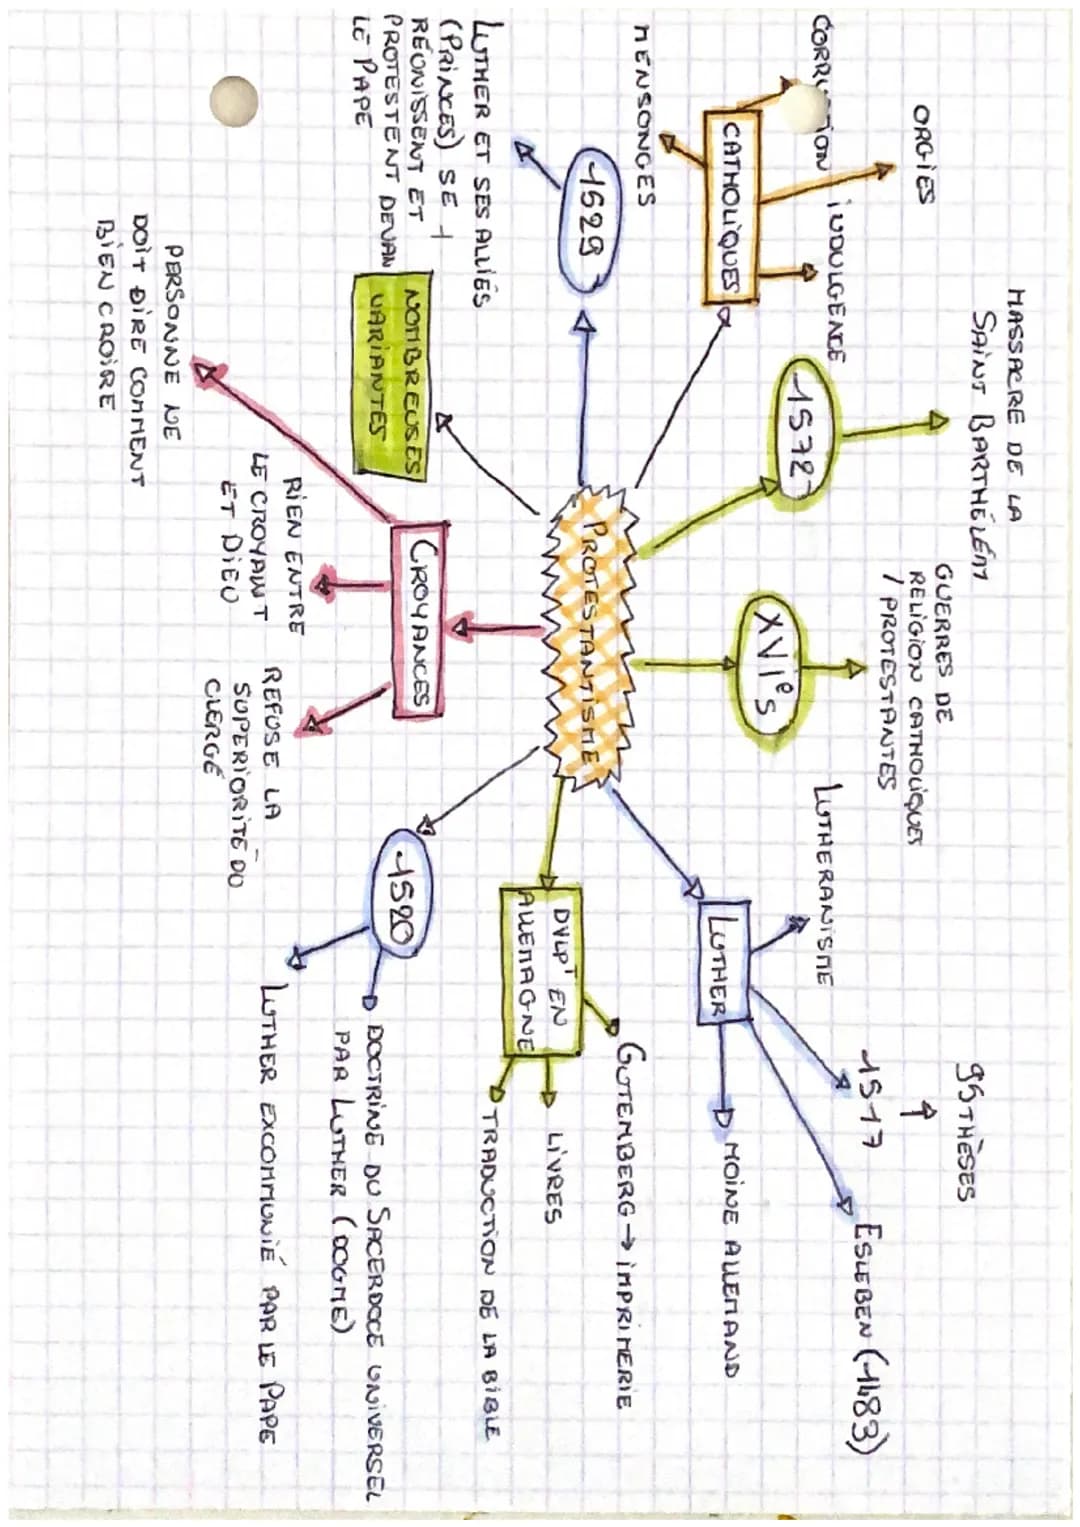 MASSACRE DE LA
SAINT BARTHÉLÉMY
ORGIES
INDULGENCE
MENSONGES
CATHOLIQUES
1572
GUERRES DE
RELIGION CATHOLIQUES
/ PROTESTANTES
XVIe s
95 THÈSES
↑
1517
ESLEBEN (1483)
LUTHERANISME
LUTHER
MOINE ALLEMAND
1529
LUTHER ET SES ALLIÉS
(PRINCES) SE
RÉUNISSENT ET
PROTESTENT DEVAN
LE PAPE
PROTESTANTISME
DVLPT EN
ALLEMAGNE
GUTEMBERG → IMPRIMERIE
LIVRES
TRADUCTION DE LA BIBLE
NOMBREUSES
VARIANTES
CROYANCES
PERSONNE NE
DOIT DIRE COMMENT
BIEN CROIRE
RIEN ENTRE
LE CROYANT
ET DIEU
REFUSE LA
SUPERIORITÉ DU
CLERGÉ
1520
DOCTRINE DU SACERDOCE UNIVERSEL
PAR LUTHER (DOGME)
LUTHER EXCOMMUNIÉ PAR LE PAPE